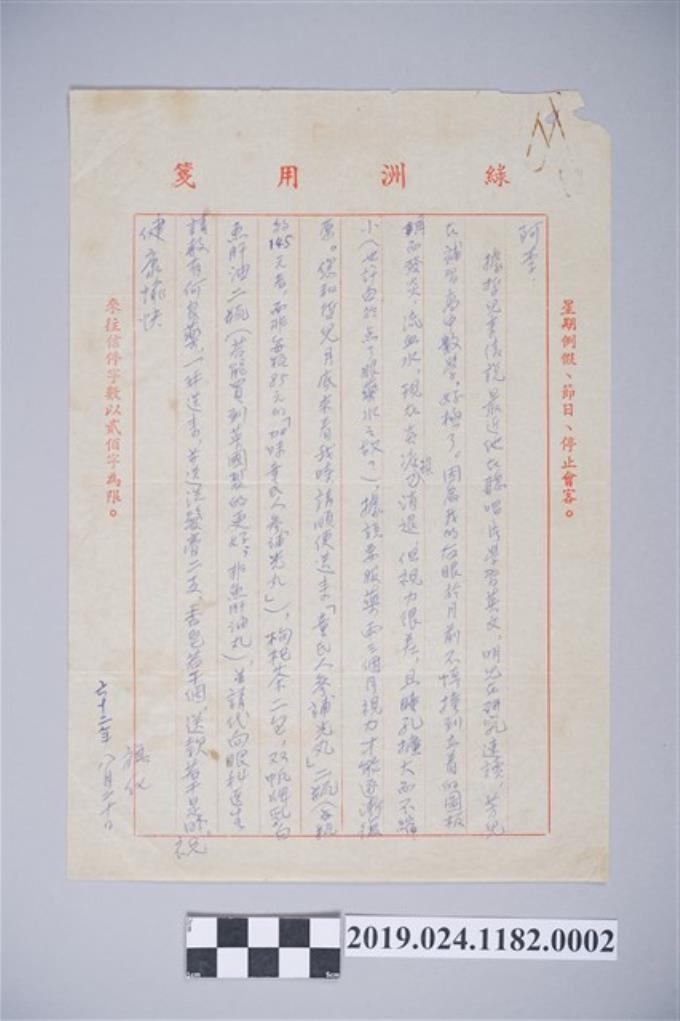 綠洲用箋
星期例假、節日、停止會客。
阿李:
據哲兒來信說最近他在聽唱片學習英文,明兒在研究速讀,芳兒
在補習高中數學,好極了。因為我的右眼於月前不慎撞到立着的圖板
而發炎,流血水,現在炎液已消退,但視力很差,且瞳孔擴大而不縮
小(也許由於点了眼藥水之故?),據說要服藥両三個月視力才能逐漸復
原。您和哲兒月底來看我時請順便送來「童氏人參補光丸」二瓶(每瓶
約145元者,而非每瓶85元的「加味童氏人參補光丸」),枸杞茶二包,双帆牌乳白
魚肝油二瓶(若能買到英國製的更好,非魚肝油丸),並請代向眼科医生
請教有何良藥,一併送來,並送洗髮膏二支,香皂若干個,送款若干是盼。祝
健康愉快
六十二年八月二十日
來往信件字數以貳佰字為限。
2019.024.1182.0002
1cm
5cm